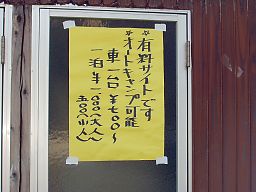 ☆有料サイトです
☆オートキャンプ可能
車一台¥700〜
一泊¥1000(大人)
500(小人)